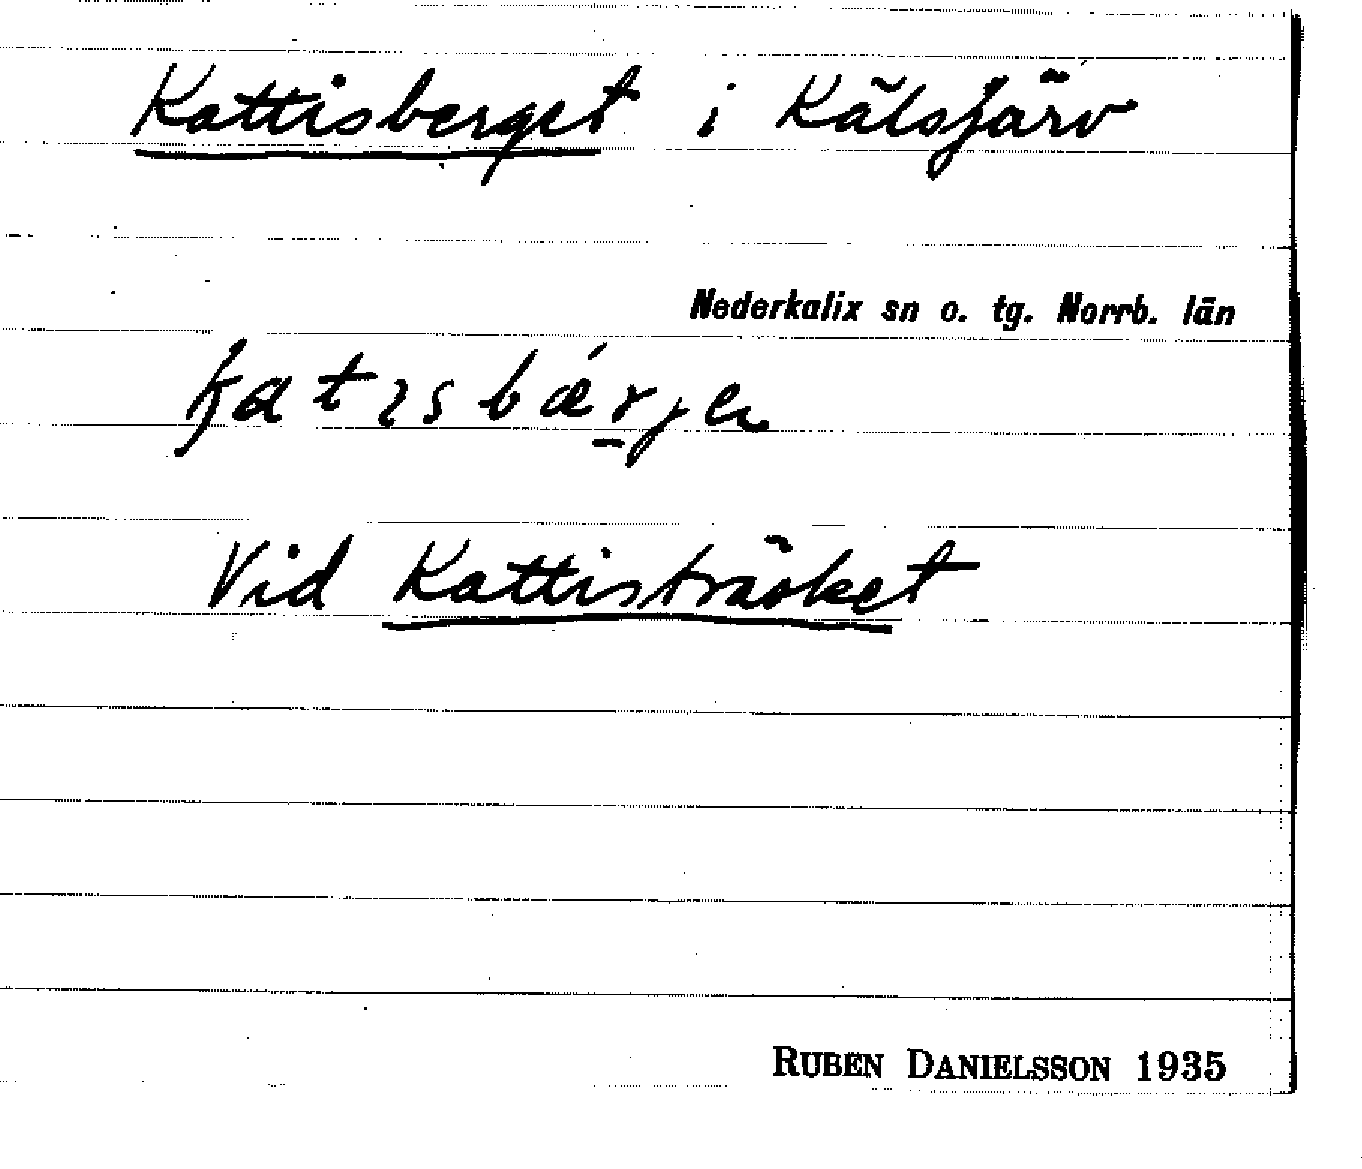 Kattisberget i Kälsjärv
Nederkalix sn o. tg. Norrb. län
katɪsbæ´r̠jen
Vid Kattisträsket
RUBEN DANIELSSON 1935